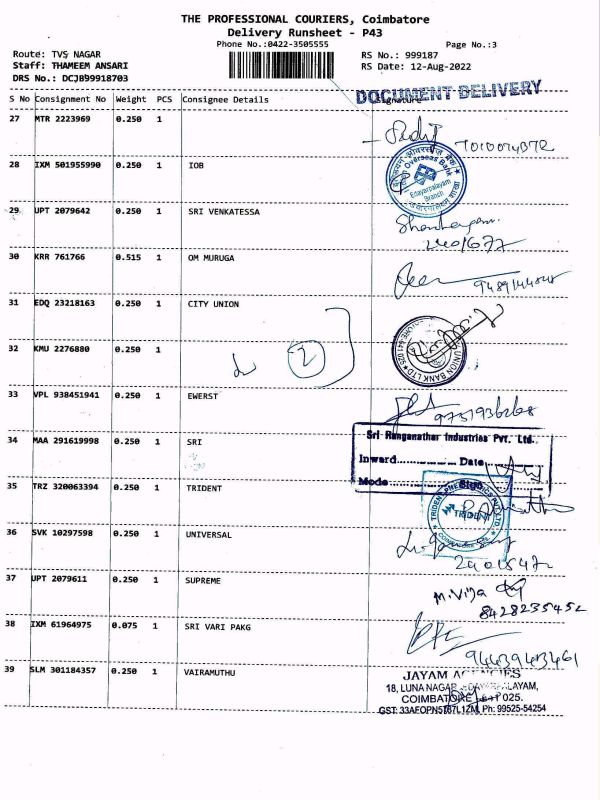 THE PROFESSIONAL COURIERS, Coimbatore
Delivery Runsheet - P43
Phone No.:0422-3505555
Page No.:3
Route: TVS NAGAR
RS No.: 999187
Staff: THAMEEM ANSARI
RS Date: 12-Aug-2022
DRS No.: DCJ899918703
DOCUMENT DELIVERY
S No Consignment No Weight PCS Consignee Details Signature
27 MTR 2223969 0.250 1
28 IXM 501955990 0.250 1 IOB
Overseas Bank
Edayarpalayam
Branch
29 UPT 2079642 0.250 1 SRI VENKATESSA
2401677
30 KRR 761766 0.515 1 OM MURUGA
9489144848
31 EDQ 23218163 0.250 1 CITY UNION
UNION BANK LTD
32 KMU 2276880 0.250 1
2
33 VPL 938451941 0.250 1 EWERST
9751936268
34 MAA 291619998 0.250 1 SRI
Sri Ranganathar Industries Pvt. Ltd.
Inward.................. Date
Mode............... Sign
35 TRZ 320063394 0.250 1 TRIDENT
TRIDENT
36 SVK 10297598 0.250 1 UNIVERSAL
37 UPT 2079611 0.250 1 SUPREME
M. Vija
8428235452
38 IXM 61964975 0.075 1 SRI VARI PAKG
9443943461
39 SLM 301184357 0.250 1 VAIRAMUTHU
JAYAM AGENCIES
18, LUNA NAGAR, EDAYARPALAYAM,
COIMBATORE - 641 025.
GST: 33AEOPN5787L1ZM, Ph: 99525-54254